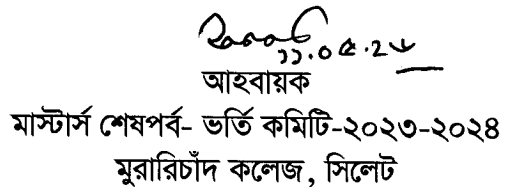 ১১.০৫.২৬
আহবায়ক
মাস্টার্স শেষপর্ব- ভর্তি কমিটি-২০২৩-২০২৪
মুরারিচাঁদ কলেজ, সিলেট